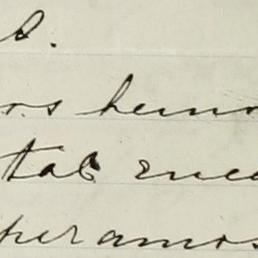 s.
ors hemo
tal ence
peramos